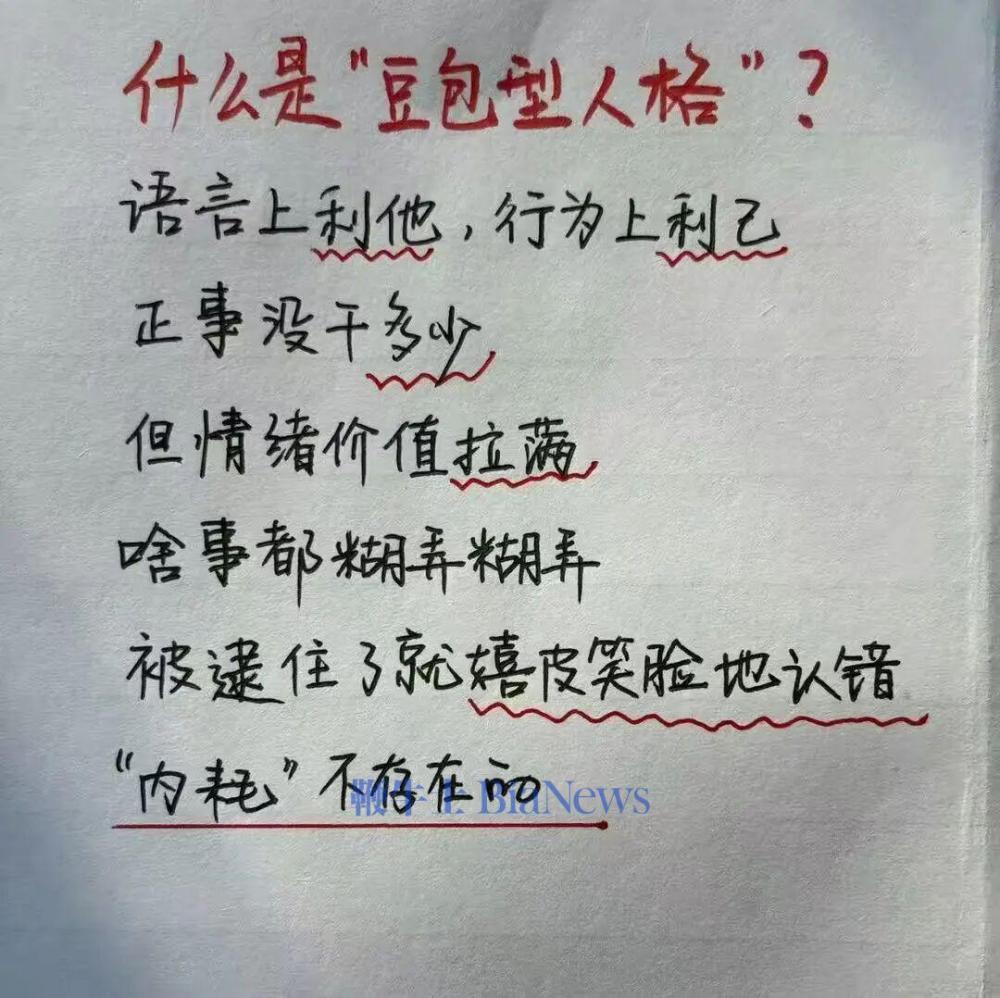 什么是“豆包型人格”?
语言上利他,行为上利己
正事没干多少
但情绪价值拉满
啥事都糊弄糊弄
被逮住了就嬉皮笑脸地认错
“内耗”不存在的
鞭牛士 BiaNews